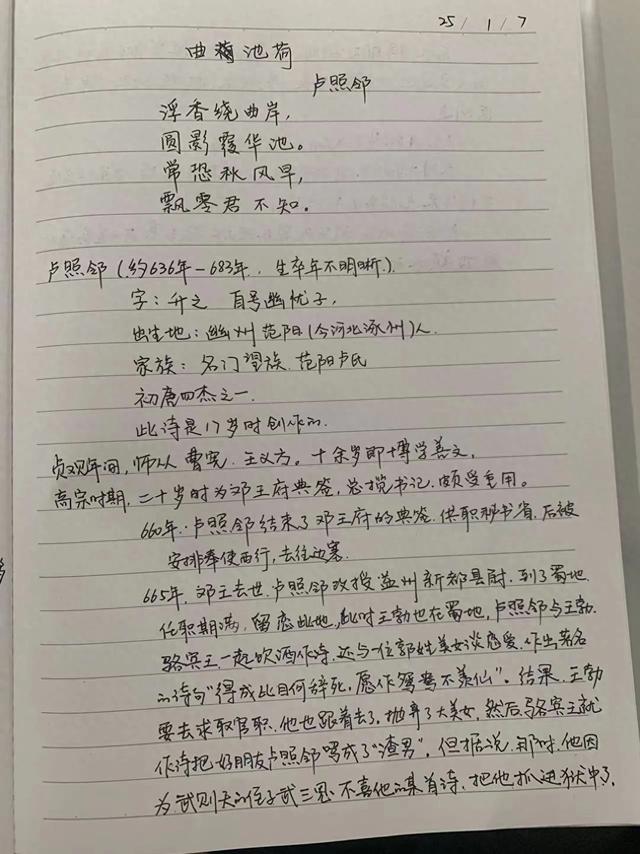 25/1/7
曲池荷
卢照邻
浮香绕曲岸，
圆影覆华池。
常恐秋风早，
飘零君不知．
卢照邻（约636年－683年．生卒年不明晰）．
字：升之　自号幽忧子，
出生地：幽州范阳（今河北涿州）人．
家族：名门望族．范阳卢氏
初唐四杰之一．
此诗是17岁时创作的．
贞观年间，师从曹宪．王义方。十余岁即博学善文，
高宗时期，二十岁时为邓王府典签，总揽书记，颇受重用。
660年．卢照邻结束了邓王府的典签．供职秘书省，后被
安排奉使西行，去往边塞．
665年．邓王去世．卢照邻改授益州新都县尉．到了蜀地．
任职期满．留恋此地，此时王勃也在蜀地，卢照邻与王勃．
骆宾王一起饮酒作诗．还与一位郭姓美女谈恋爱．作出著名
的诗句“得成比目何辞死，愿作鸳鸯不羡仙”。结果．王勃
要去求取官职．他也跟着去了．抛弃了大美女．然后骆宾王就
作诗把好朋友卢照邻骂成了“渣男”．但据说．那时．他因
为武则天的侄子武三思不喜他的某首诗．把他抓进狱中了．